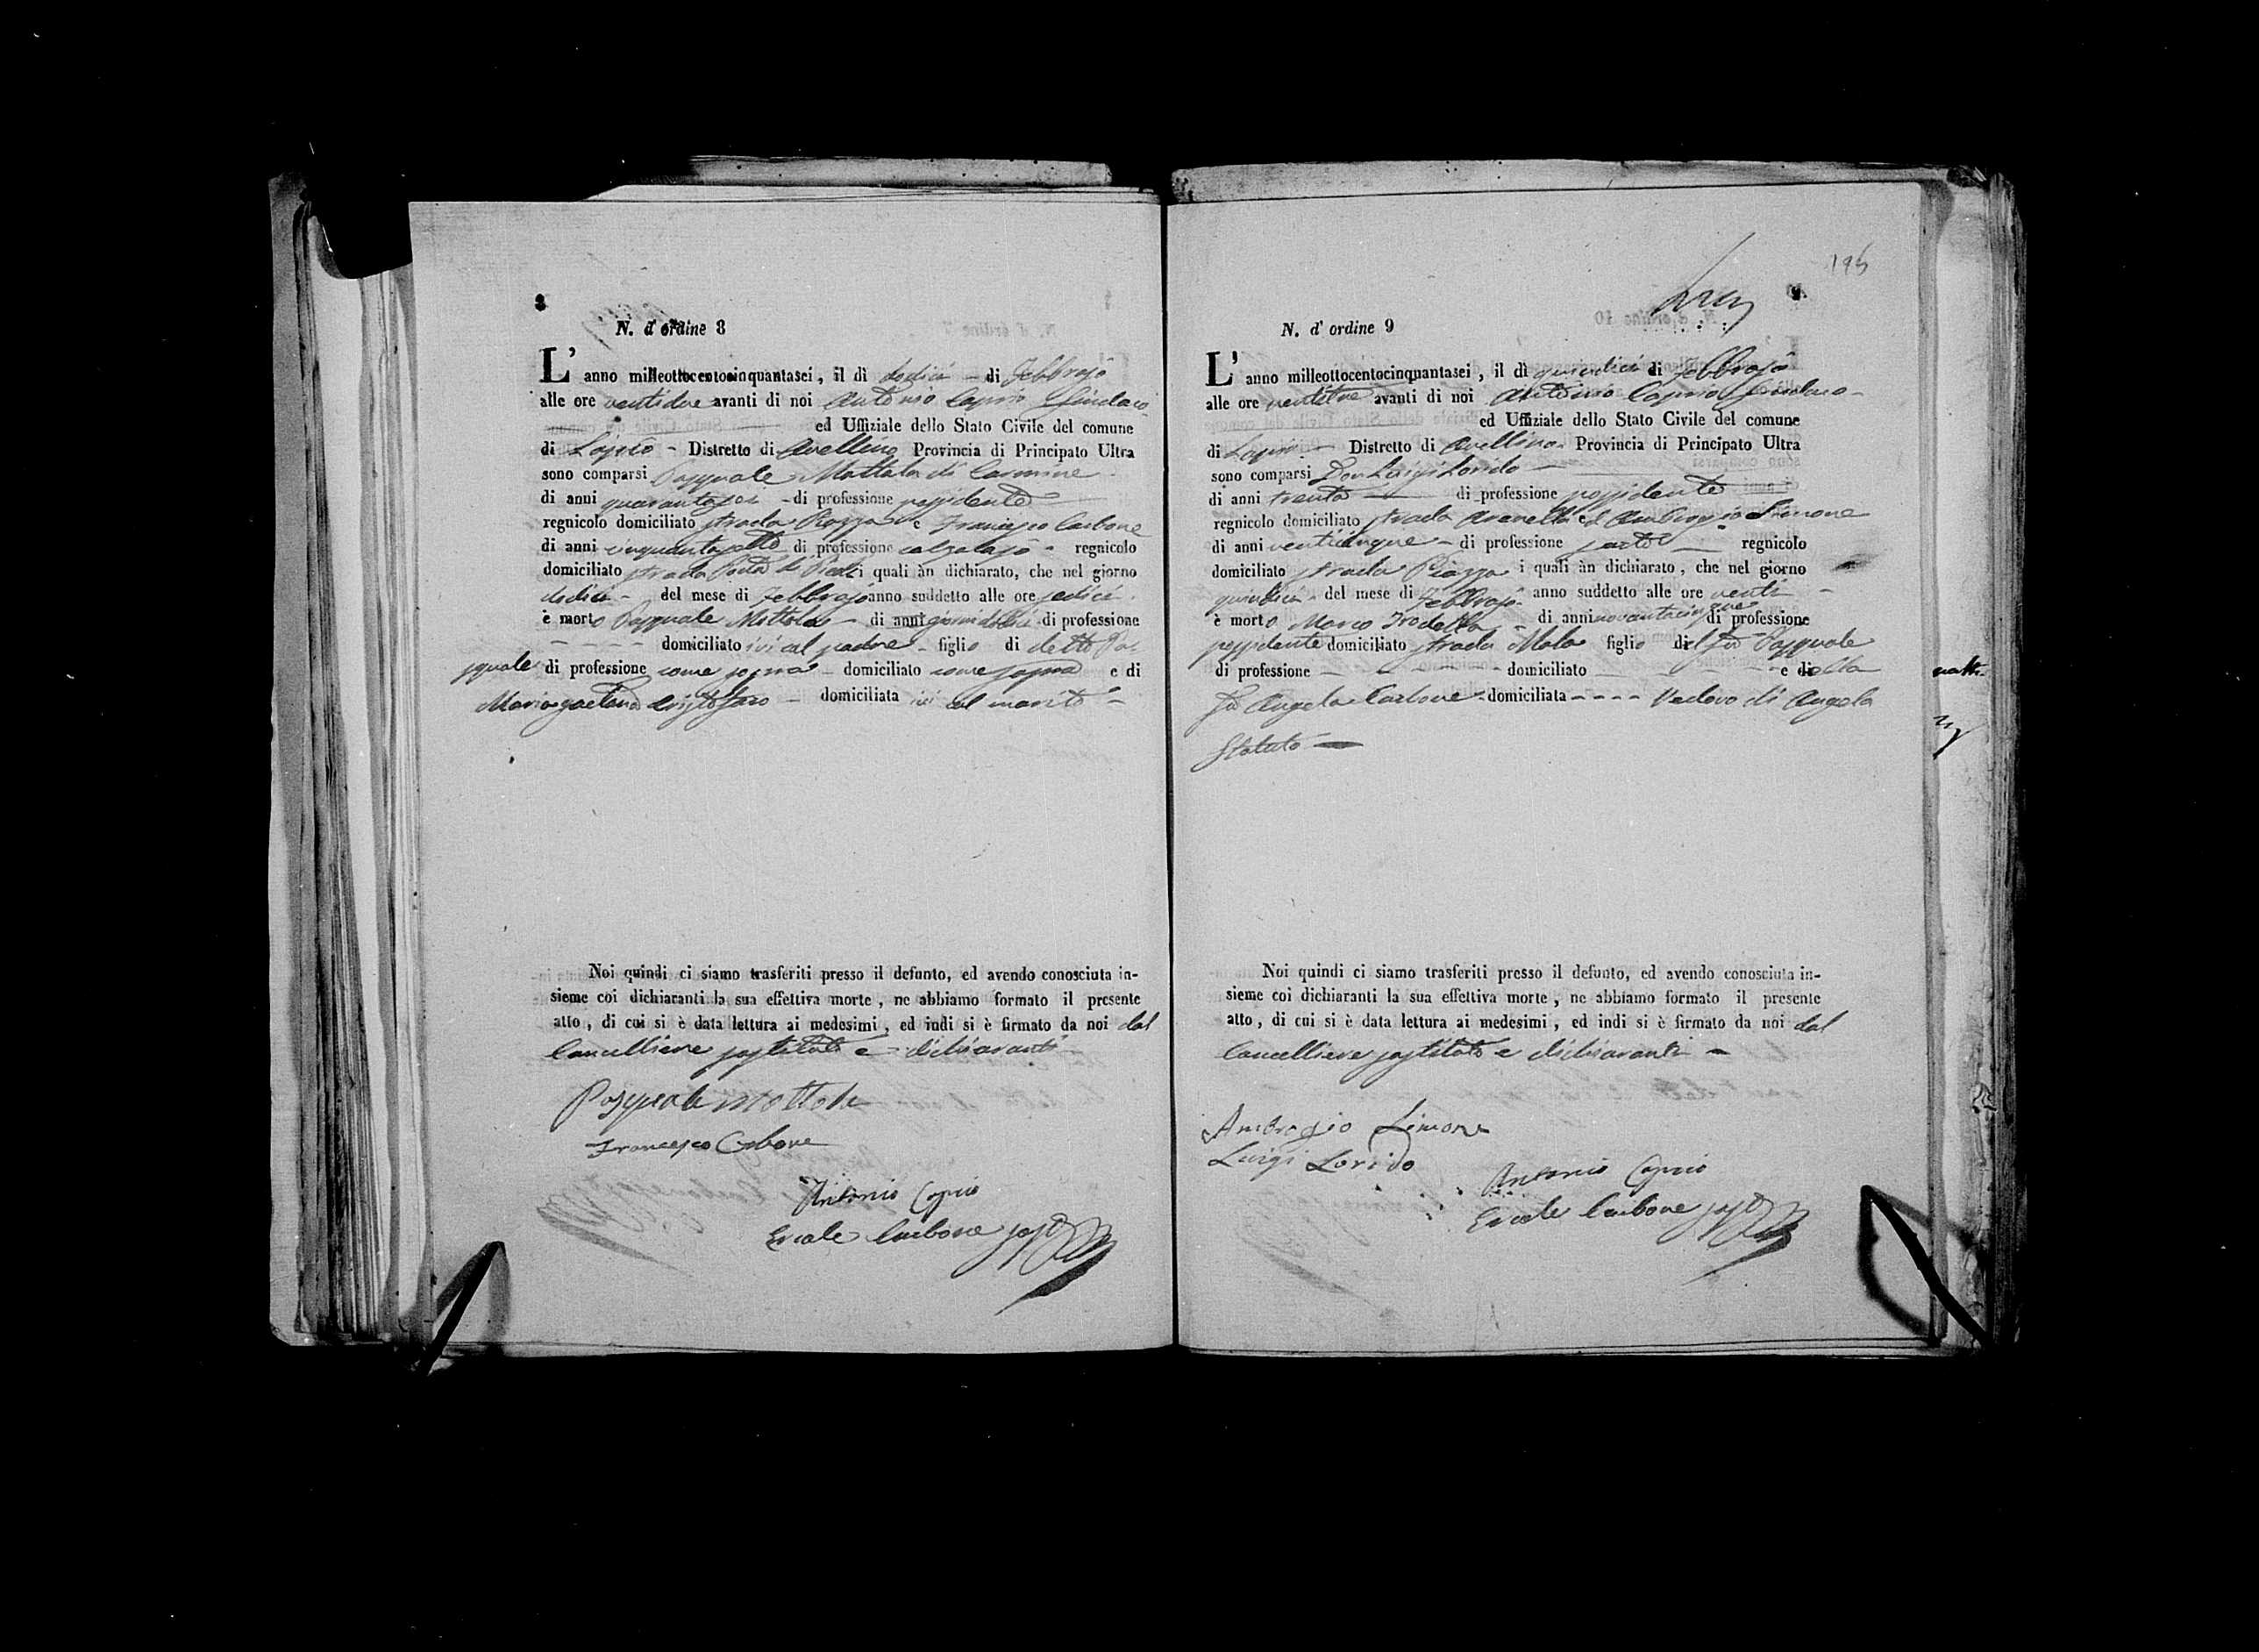 8
N. d' ordine 8
L' anno milleottocentocinquantasei, il dì dodici - di Febbrajo
alle ore ventidue avanti di noi Antonio Caprio Sindaco
ed Uffiziale dello Stato Civile del comune
di Lapio - Distretto di Avellino Provincia di Principato Ultra
sono comparsi Pasquale Mottola di Carmine
di anni quarantasei - di professione possidente
regnicolo domiciliato strada Piazza e Francesco Carbone
di anni cinquantasette di professione calzolajo - regnicolo
domiciliato strada Porta di i quali àn dichiarato, che nel giorno
dodici - del mese di Febbrajo anno suddetto alle ore sedici
è morto Pasquale Mottola - di anni giorni dodici di professione
- - - - domiciliato ivi col padre - figlio di detto Pa-
squale di professione come sopra - domiciliato come sopra e di
Maria Gaetana Cristofaro - domiciliata ivi col marito -
Noi quindi ci siamo trasferiti presso il defunto, ed avendo conosciuta in-
sieme coi dichiaranti la sua effettiva morte, ne abbiamo formato il presente
atto, di cui si è data lettura ai medesimi, ed indi si è firmato da noi dal
Cancelliere sostituto e dichiaranti
Pasquale Mottola
Francesco Carbone
Antonio Caprio
Ercole Carbone sost
195
9
N. d' ordine 9
L' anno milleottocentocinquantasei, il dì quindici di Febbrajo
alle ore ventitre avanti di noi Antonio Caprio Sindaco -
ed Uffiziale dello Stato Civile del comune
di Lapio - Distretto di Avellino - Provincia di Principato Ultra
sono comparsi Don Luigi Lorido -
di anni trenta - di professione possidente
regnicolo domiciliato strada Aranella ed Ambrogio Limone
di anni venticinque - di professione sarto - regnicolo
domiciliato strada Piazza i quali àn dichiarato, che nel giorno
quindici - del mese di Febbrajo - anno suddetto alle ore venti -
è morto Marco Trodella - di anni novantacinque di professione
possidente domiciliato strada Mola figlio del fu Pasquale
di professione - - - - domiciliato - - e della
fu Angela Carbone - domiciliata - - - - Vedovo di Angela
Statuto -
Noi quindi ci siamo trasferiti presso il defunto, ed avendo conosciuta in-
sieme coi dichiaranti la sua effettiva morte, ne abbiamo formato il presente
atto, di cui si è data lettura ai medesimi, ed indi si è firmato da noi dal
Cancelliere sostituto e dichiaranti -
Ambrogio Limone
Luigi Lorido
Antonio Caprio
Ercole Carbone sost